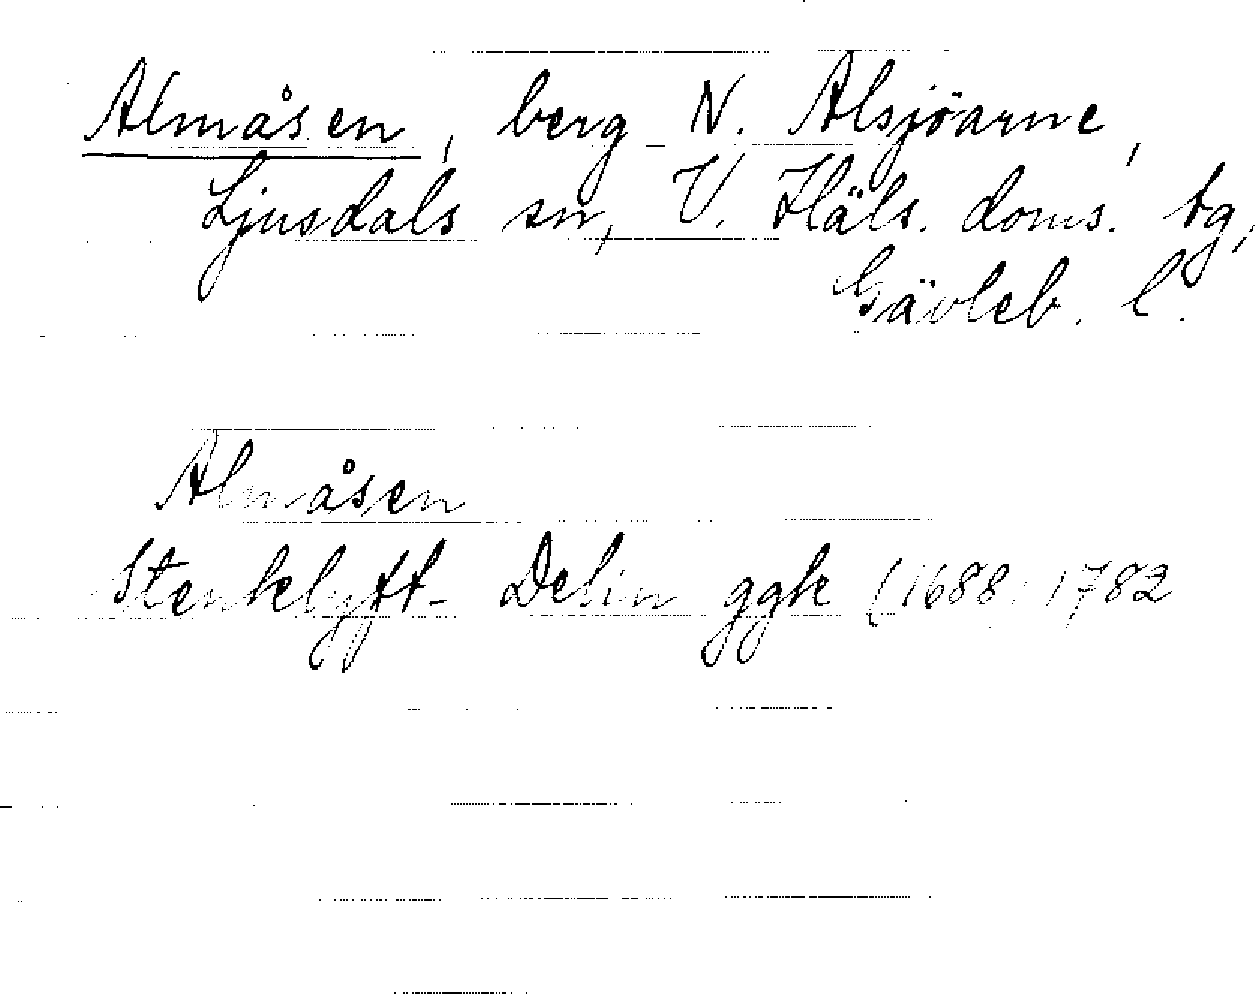 Almåsen, berg N. Alsjöarne,
Ljusdals sn, V. Häls. doms. tg,
Gävleb. l.
Almåsen
Stenklyft- Delin ggk (1688: 1782